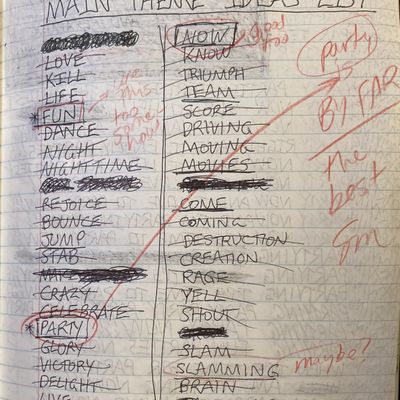 MAIN THEME IDEAS LIST
LOVE
KILL
LIFE
*FUN
DANCE
NIGHT
NIGHTTIME
REJOICE
BOUNCE
JUMP
STAB
CRAZY
CELEBRATE
*PARTY
GLORY
VICTORY
DELIGHT
LIVE
NOW
KNOW
TRIUMPH
TEAM
SCORE
DRIVING
MOVING
MOVIES
COME
COMING
DESTRUCTION
CREATION
RAGE
YELL
SHOUT
SLAM
SLAMMING
BRAIN
maybe?
party
is
BY FAR
the
best